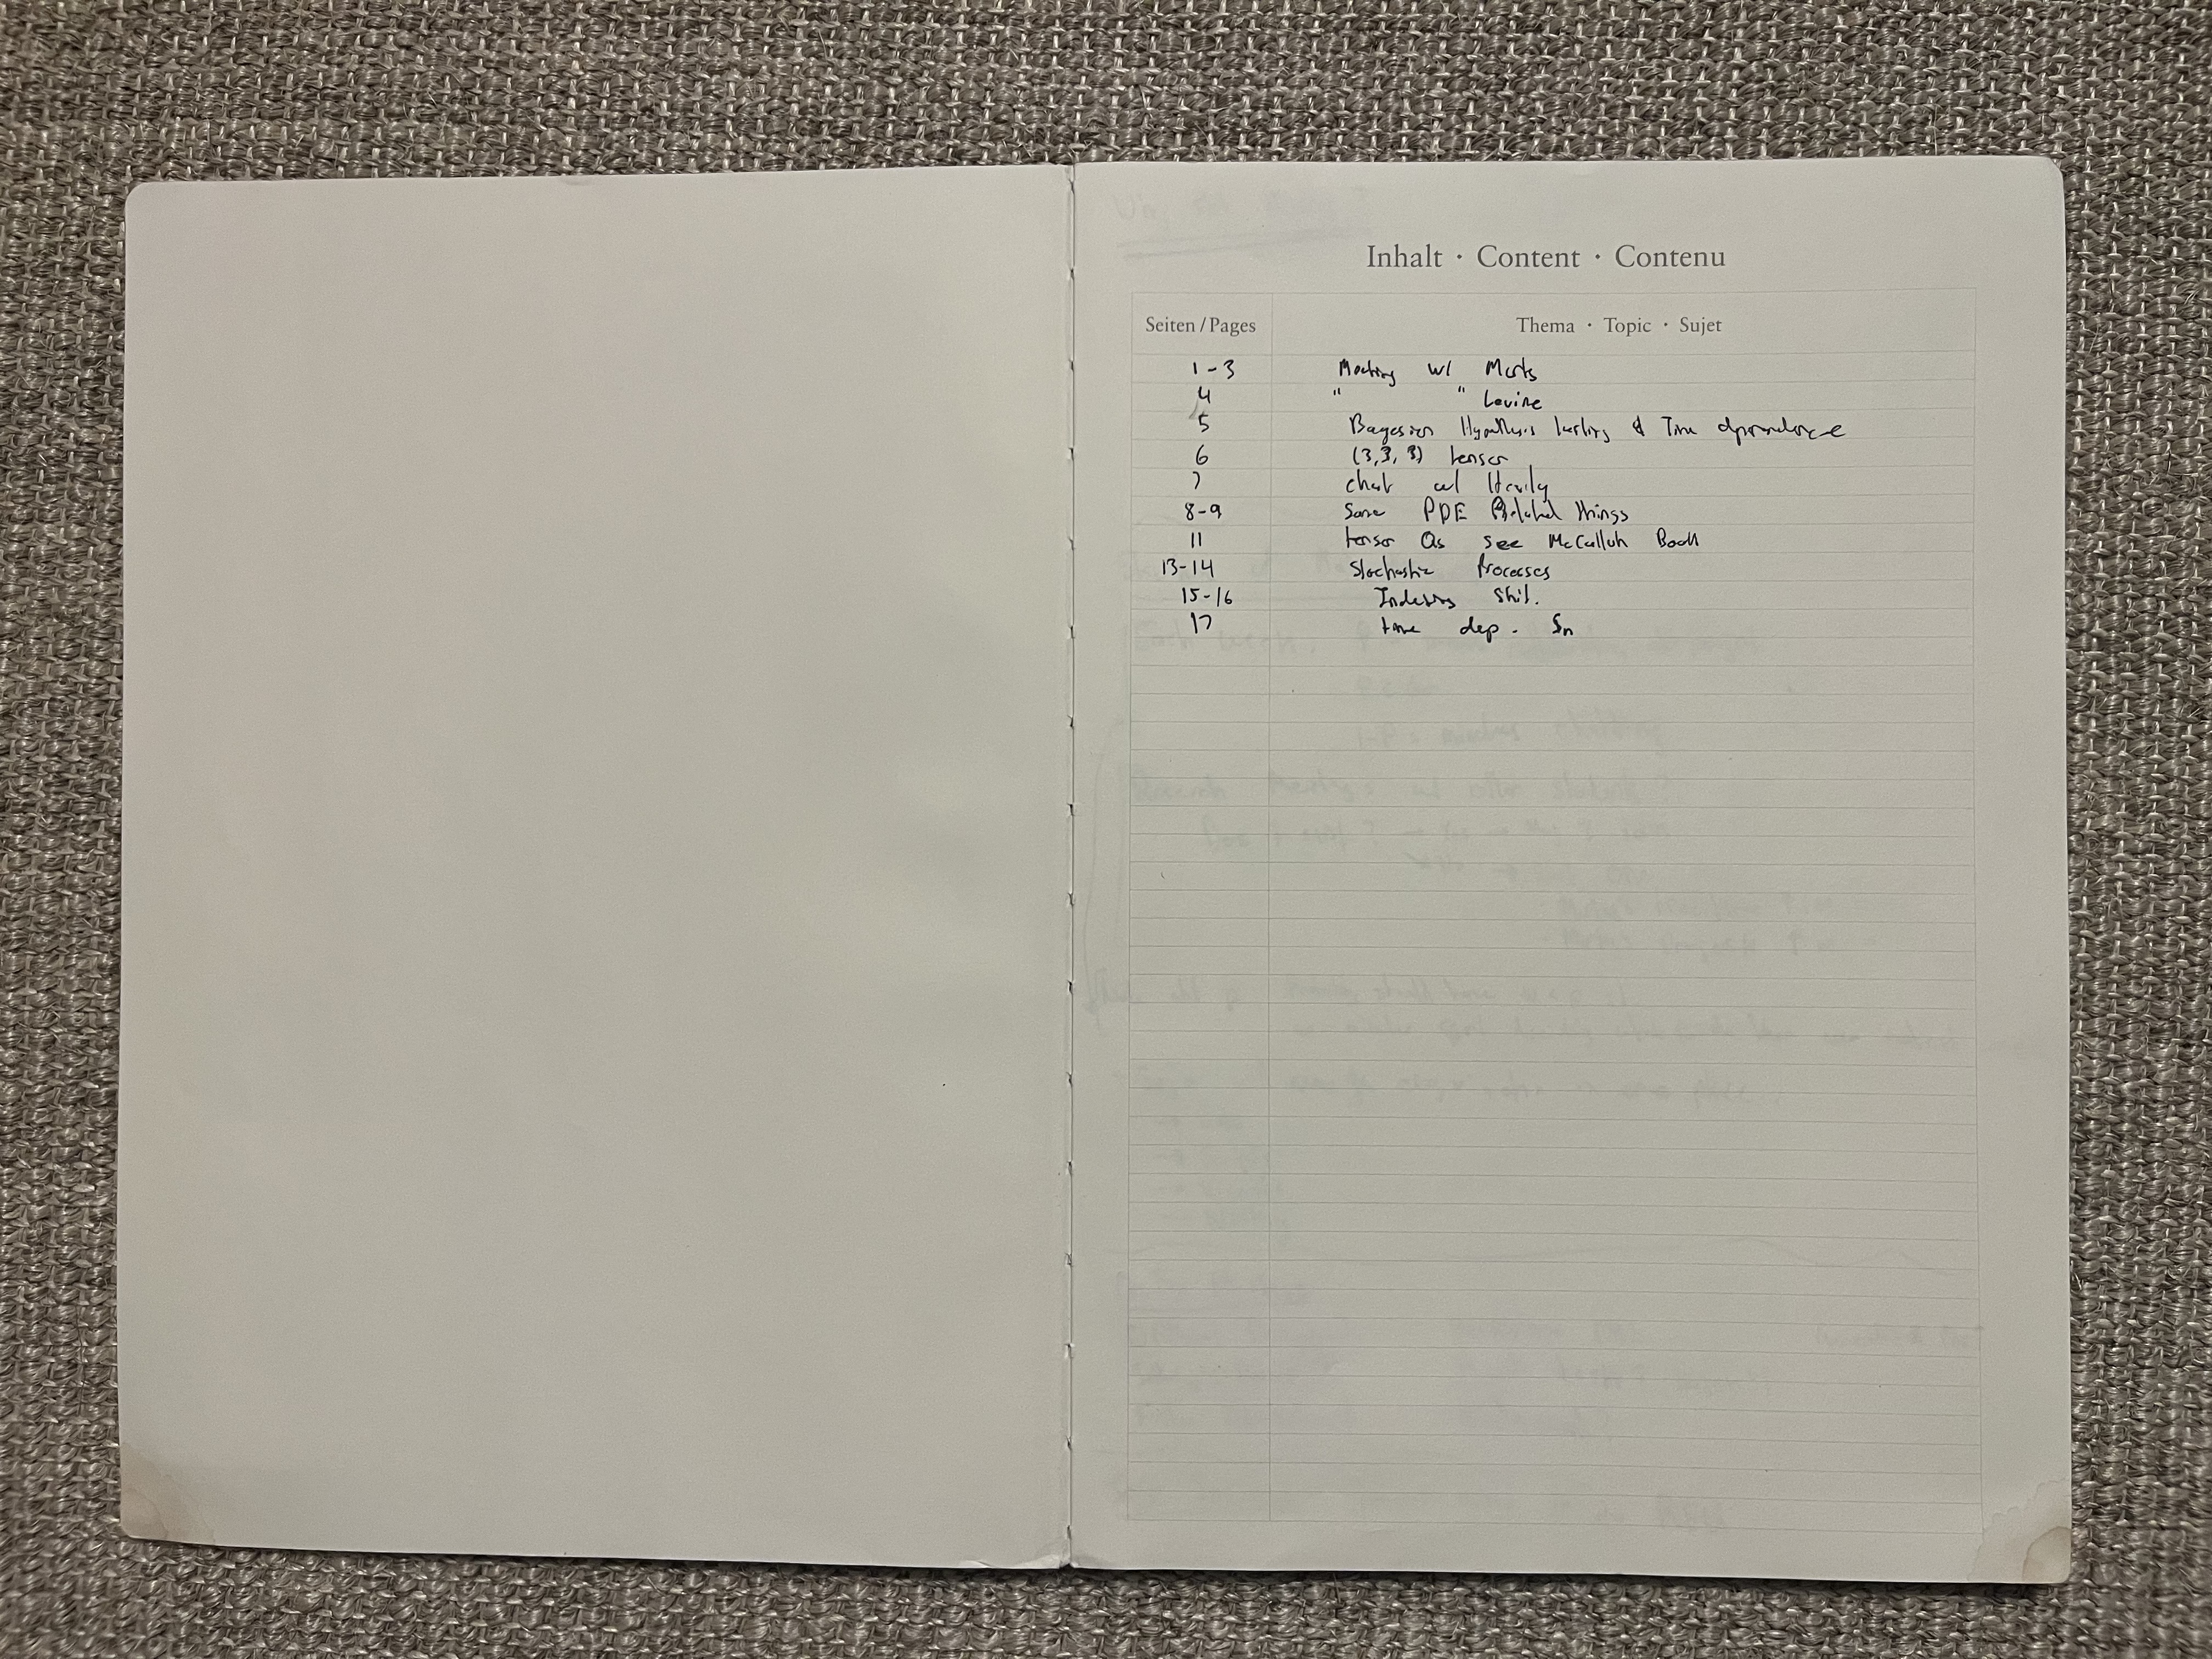 Inhalt · Content · Contenu
Seiten / Pages Thema · Topic · Sujet
1-3 Meeting w/ Marts
4 " " Levine
5 Bayesian Hypothesis testing & Time dependence
6 (3,3,3) tensor
7 chat w/
8-9 Some PDE Related things
11 tensor Qs see McCulloh Book
13-14 Stochastic Processes
15-16 Indexing shit.
17 time dep. Sn